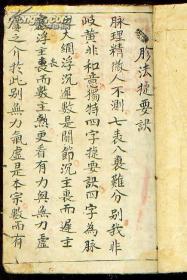 脉法捷要訣
脉理精隊人不測七表八裏難分别我非
岐黄非和意獨特四字捷要訣四字為脉
大綱浮沉遲數是関節沉主裏而遲主
寒浮主表而數主熱更看有力與無力虛
實之介於此别無力氣虛是本宗數而有